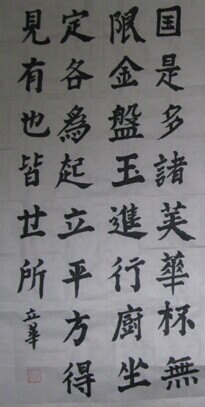 国是多諸芙華杯無
限金盤玉進行廚坐
定各為起立平方得
見有也皆世所
立華